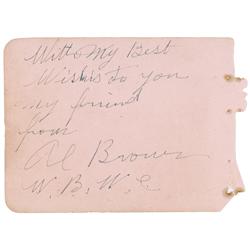 With My Best
Wishis to you
my friend
from
Al Brown
W. B. W. C